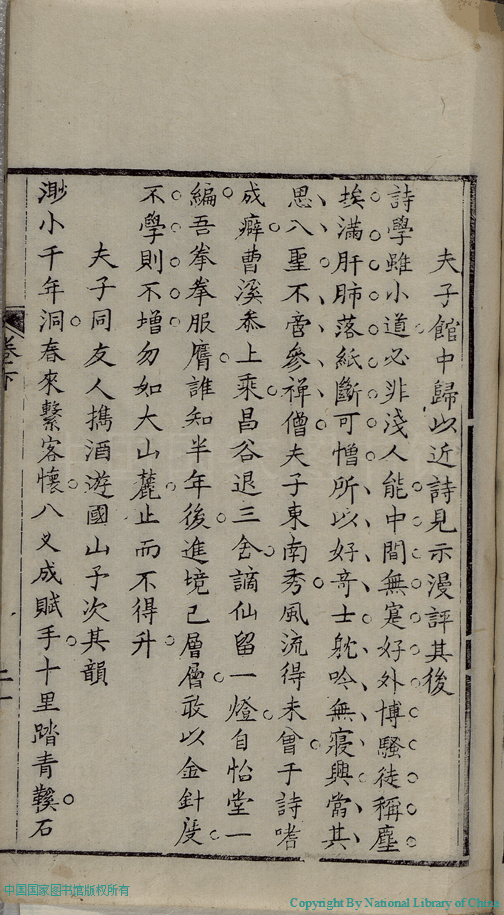 夫子館中歸以近詩見示漫評其後
詩學雖小道必非淺人能中間無寔好外博騷徒稱塵
埃滿肝肺落紙斷可憎所以好奇士躭吟無寢興當其
思入聖不啻參禪僧夫子東南秀風流得未曾于詩嗜
成癖曹溪叅上乘昌谷退三舍謫仙留一燈自怡堂一
編吾拳拳服膺誰知半年後進境已層層敢以金針度
不學則不增勿如大山麓止而不得升
夫子同友人攜酒遊國山予次其韻
渺小千年洞春來繫客懷八叉成賦手十里踏青鞵石
卷下
二十一
中国国家图书馆版权所有
Copyright By National Library of China